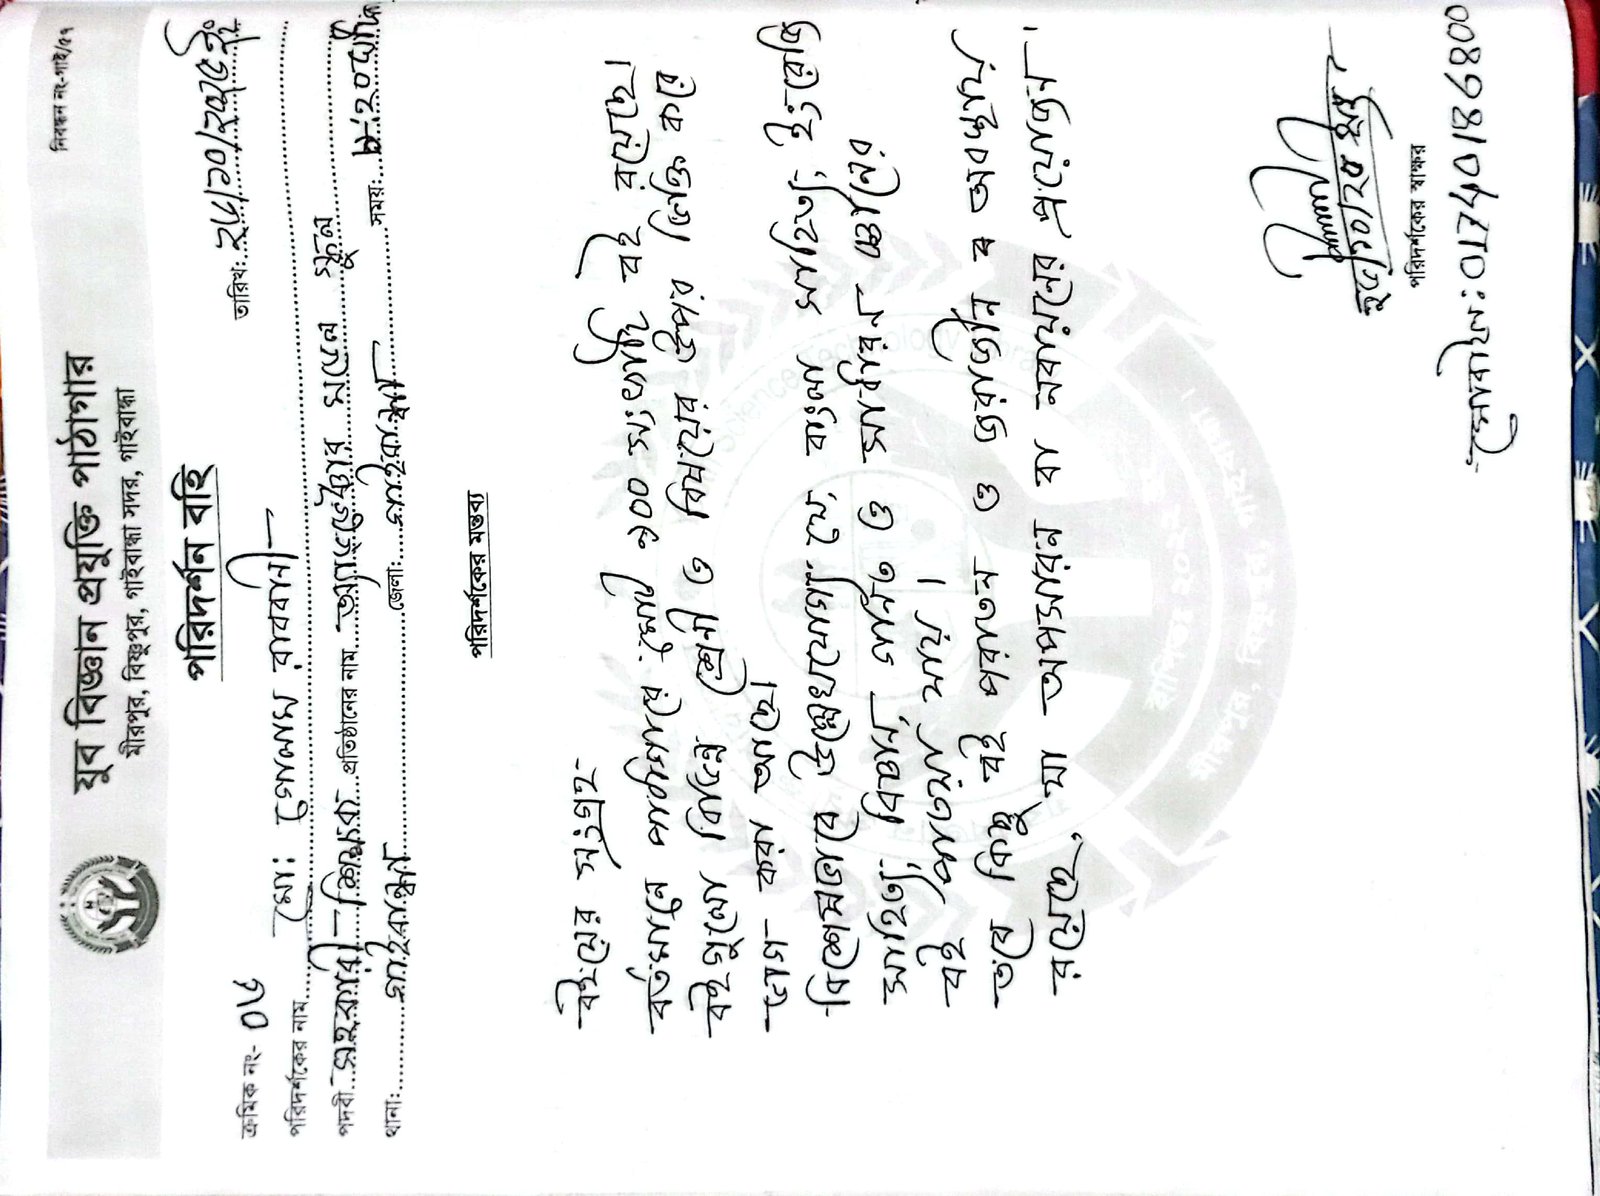 নিবন্ধন নং-গাই/৫৭
যুব বিজ্ঞান প্রযুক্তি পাঠাগার
মীরপুর, বিষ্ণুপুর, গাইবান্ধা সদর, গাইবান্ধা
পরিদর্শন বহি
ক্রমিক নং- ০৬ তারিখ: ২৫/১০/২০২৫ ইং
পরিদর্শকের নাম মো: গোলাম রাব্বানী
পদবী সহকারী শিক্ষক প্রতিষ্ঠানের নাম অ্যাডভেঞ্চার মডেল স্কুল
থানা: গাইবান্ধা জেলা: গাইবান্ধা সময়:
পরিদর্শকের মন্তব্য
বইয়ের সংগ্রহ-
বর্তমানে পাঠাগারে মোট ৯০০ সংখ্যাটি বই রয়েছে।
বইগুলো বিভিন্ন শ্রেণী ও বিষয়ের উপর ভিত্তি করে
ভাগ করা আছে।
বিশেষভাবে উল্লেখযোগ্য যে, বাংলা সাহিত্য, ইংরেজি
সাহিত্য, বিজ্ঞান, গণিত ও সাধারণ জ্ঞানের
বই পাওয়া যায়।
তবে কিছু বই পুরাতন ও জরাজীর্ণ অবস্থায়
রয়েছে, যা অপসারণ বা নবায়নের প্রয়োজন।
২৫/১০/২৫ ইং
পরিদর্শকের স্বাক্ষর
মোবাইল: 01740186800